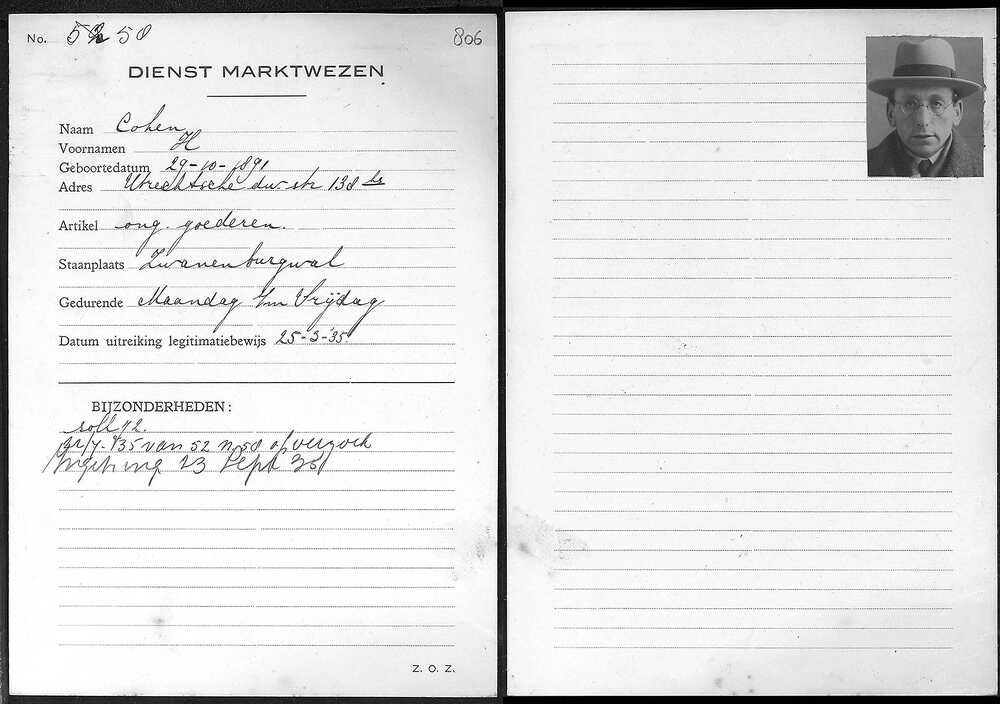 No. 52 58
806
DIENST MARKTWEZEN
Naam Cohen
Voornamen H
Geboortedatum 29-10-1891
Adres Utrechtsche dw. str 138 hs
Artikel ong. goederen.
Staanplaats Zwanenburgwal
Gedurende Maandag t/m Vrijdag
Datum uitreiking legitimatiebewijs 25-3-'35
BIJZONDERHEDEN:
soll 12.
/7-'35 van 52 n 58 op verzoek
13 Sept
Z. O. Z.